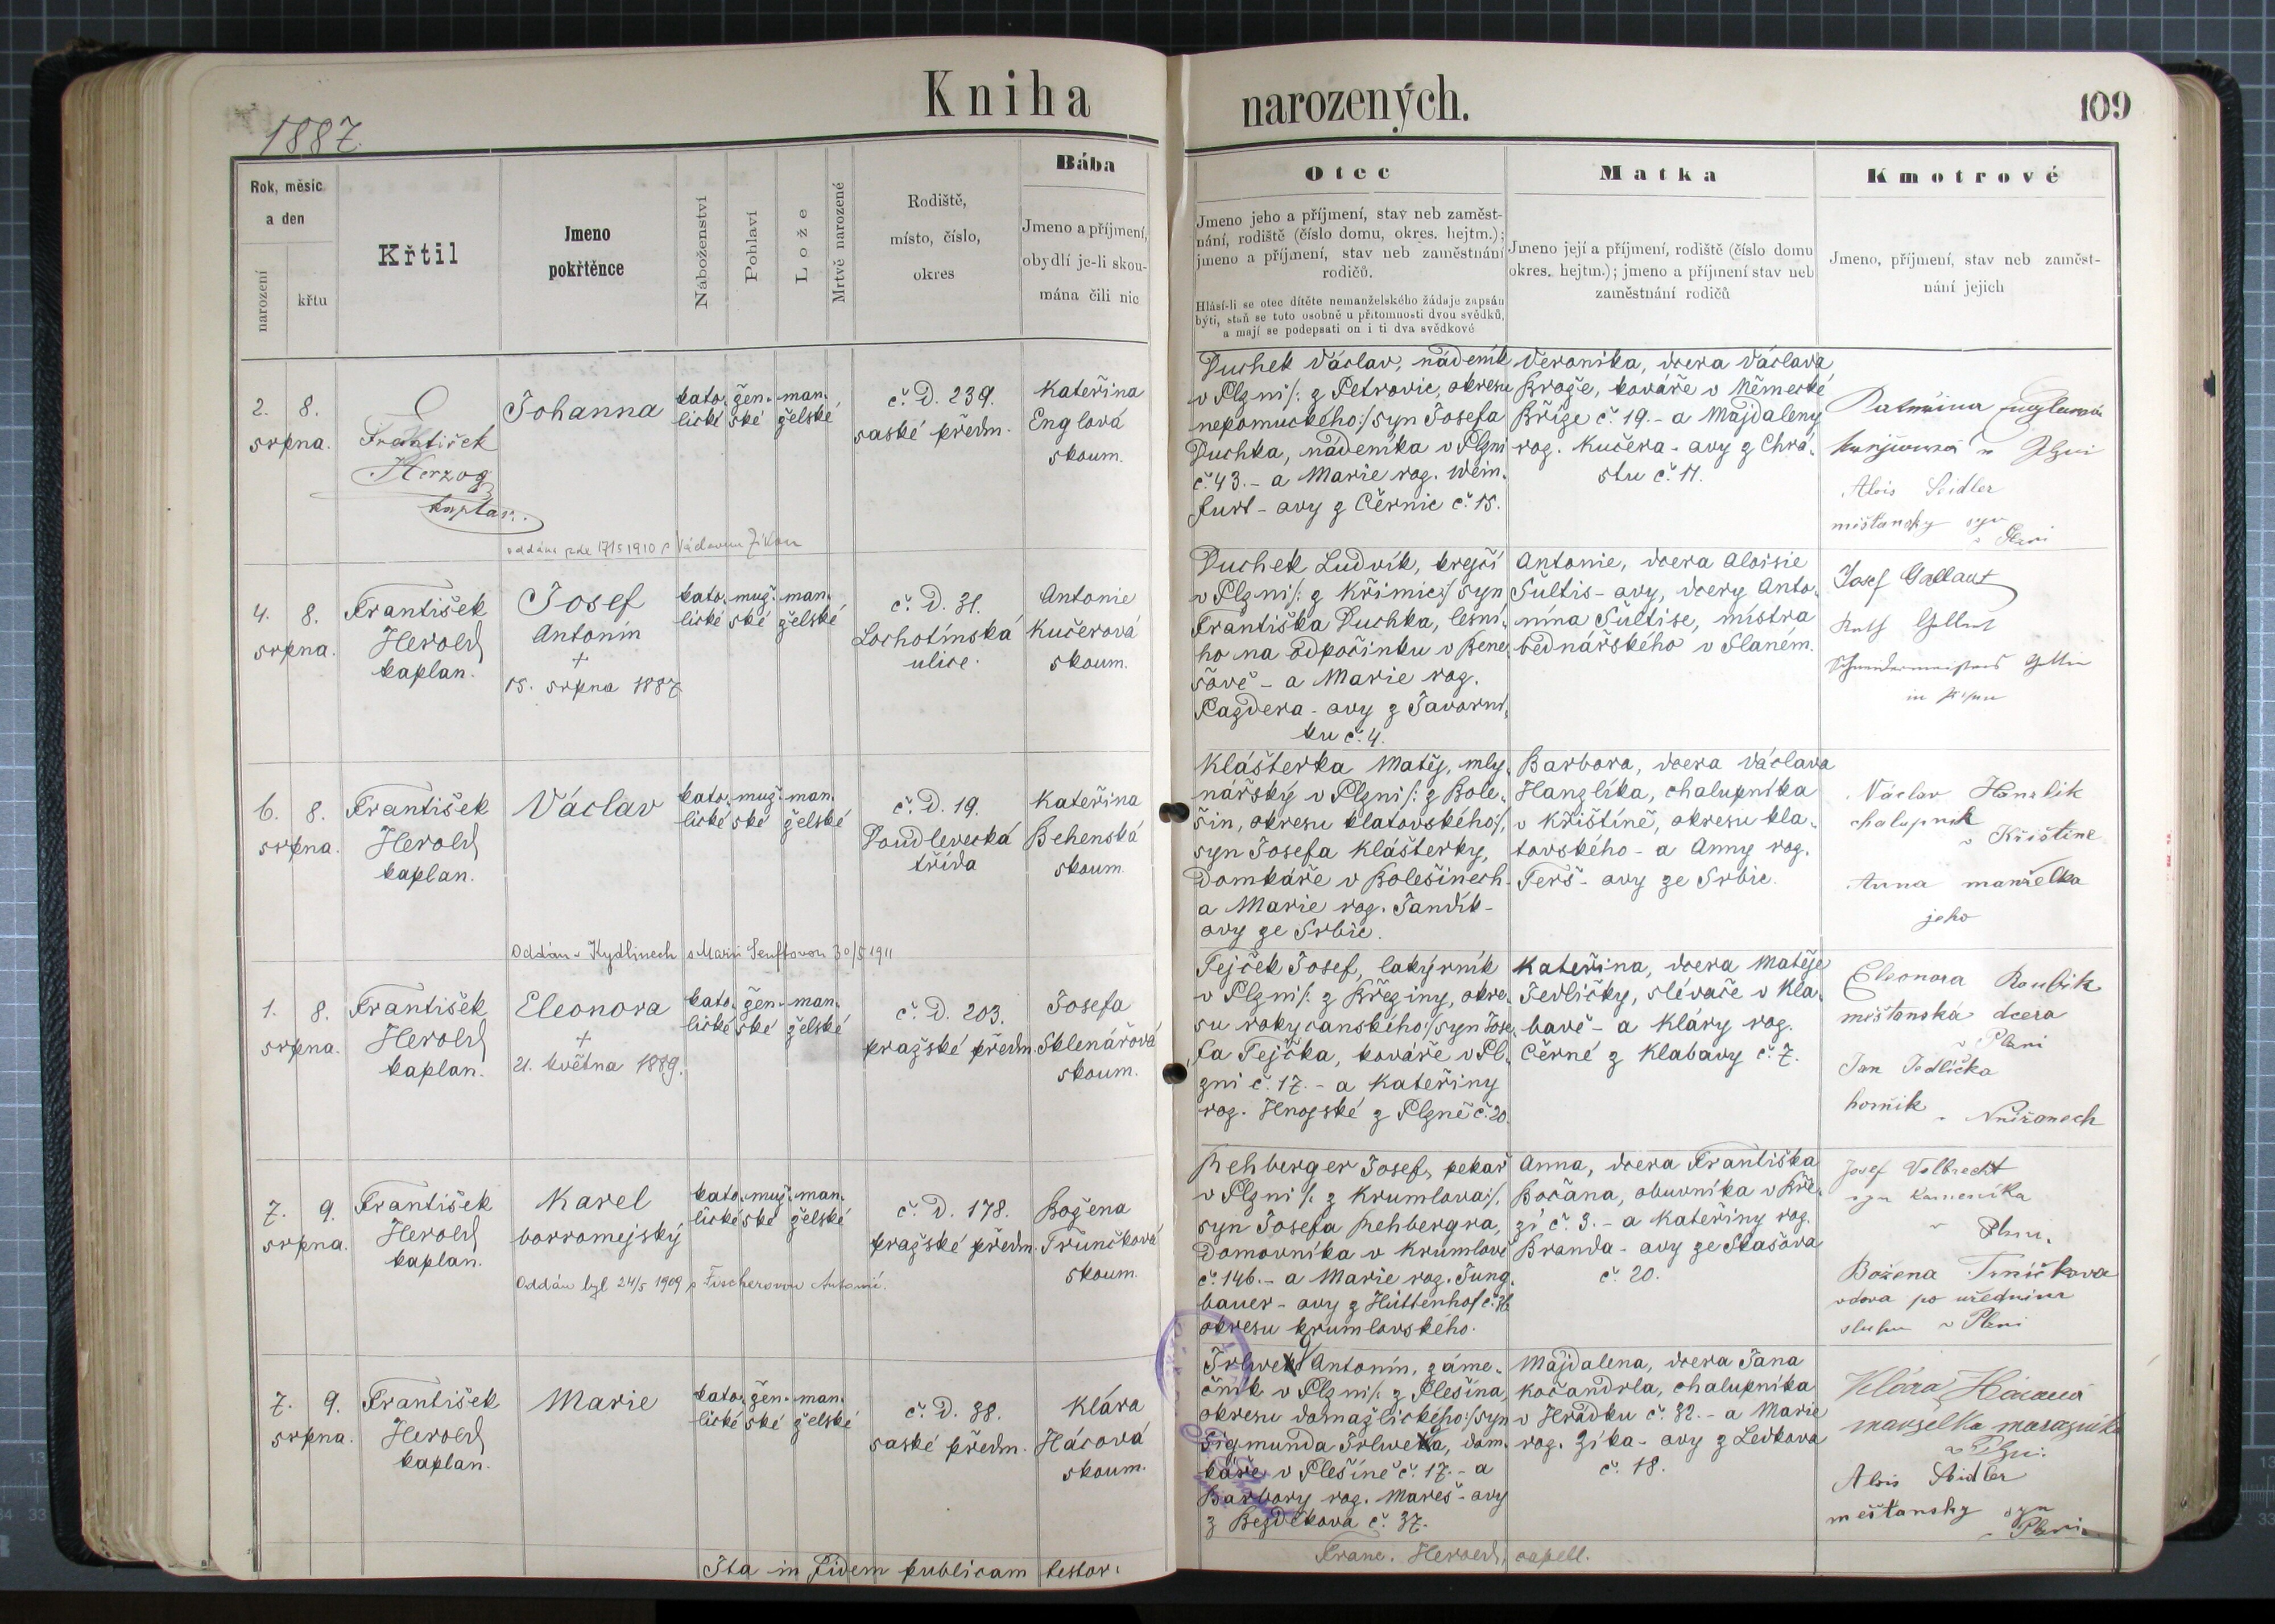 Kniha
narozených.
109
1887.
Rok, měsíc
a den
narození
křtu
Křtil
Jmeno
pokřtěnce
Náboženství
Pohlaví
Lože
Mrtvě narozené
Rodiště,
místo, číslo,
okres
Bába
Jmeno a příjmení,
obydlí je-li skou-
mána čili nic
Otec
Jmeno jeho a příjmení, stav neb zaměst-
nání, rodiště (číslo domu, okres. hejtm.);
jmeno a příjmení, stav neb zaměstnání
rodičů.
Hlásí-li se otec dítěte nemanželského žádaje zapsán
býti, staň se toto osobně u přítomnosti dvou svědků,
a mají se podepsati on i ti dva svědkové
Matka
Jmeno její a příjmení, rodiště (číslo domu
okres. hejtm.); jmeno a příjmení stav neb
zaměstnání rodičů
Kmotrové
Jmeno, příjmení, stav neb zaměst-
nání jejich
2. 8.
srpna.
František
Herzog
kaplan.
Johanna
oddána zde 17/5 1910 s Václavem Zikou
kato- žen- man-
lické ské želské
č. D. 239.
saské předm.
Kateřina
Englová
skoum.
Duchek Václav, nádeník
v Plzni /: z Petrovic, okresu
nepomuckého :/ syn Josefa
Duchka, nádeníka v Plzni
č. 43. - a Marie roz. Wein-
furt - ovy z Černic č. 15.
Veronika, dcera Václava
Brože, kováře v Německé
Bříze č. 19. - a Majdaleny
roz. Kučera - ovy z Chrá-
stu č. 11.
v Plzni
Alois Seidler
mišťansky syn
v Plzni
4. 8.
srpna.
František
Herold
kaplan.
Josef
Antonín
+
15. srpna 1887
kato- muž- man-
lické ské želské
č. D. 31.
Lochotínská
ulice.
Antonie
Kučerová
skoum.
Duchek Ludvík, krejčí
v Plzni /: z Křimic :/ syn
Františka Duchka, lesní-
ho na odpočinku v Bene-
šově - a Marie roz.
Pazdera - ovy z Javorní-
ku č. 4.
Antonie, dcera Aloisie
Šultis - ovy, dcery Anto-
nína Šultise, mistra
bednářského v Slaném.
Josef Gallaut
6. 8.
srpna.
František
Herold
kaplan.
Václav
Oddán v Kydlinech s Marií Senftovou 30/5 1911
kato- muž- man-
lické ské želské
č. D. 19.
Doudlevecká
třída
Kateřina
Behenská
skoum.
Klášterka Matěj, mly-
nářský v Plzni /: z Bole-
šin, okresu klatovského :/,
syn Josefa Klášterky,
domkáře v Bolešinech -
a Marie roz. Jandík -
ovy ze Srbic.
Barbora, dcera Václava
Hanzlíka, chalupníka
v Křištíně, okresu kla-
tovského - a Anny roz.
Terš - ovy ze Srbic.
Václav Hanzlik
chalupník
v Křištíne
Anna manželka
jeho
1. 8.
srpna.
František
Herold
kaplan.
Eleonora
+
21. května 1889.
kato- žen- man-
lické ské želské
č. D. 203.
pražské předm.
Josefa
Sklenářová
skoum.
Tejček Josef, lakýrník
v Plzni /: z Březiny, okre-
su rokycanského :/ syn Jose-
fa Tejčka, kováře v Pl-
zni č. 17. - a Kateřiny
roz. Hnojské z Plzně č. 20.
Kateřina, dcera Matěje
Jedličky, slévače v Kla-
bavě - a Kláry roz.
Černé z Klabavy č. 7.
Eleonora Roubik
mišťanská dcera
v Plzni
Jan Jedlička
horník
v Nnířanech
7. 9.
srpna.
František
Herold
kaplan.
Karel
borromejský
Oddán byl 24/5 1909 s Fischerovou Antonií.
kato- muž- man-
lické ské želské
č. D. 178.
pražské předm.
Božena
Trunčková
skoum.
Rehberger Josef, pekař
v Plzni /: z Krumlova :/,
syn Josefa Rehbergra,
domovníka v Krumlově
č. 146. - a Marie roz. Jung-
bauer - ovy z Hüttenhof č. 36.
okresu krumlovského.
Anna, dcera Františka
Bočana, obuvníka v Bře-
zí č. 3. - a Kateřiny roz.
Branda - ovy ze Skašova
č. 20.
Josef Volbrecht
syn kameníka
v Plzni.
Božena Trničkova
vdova po uředniku
v Plzni
7. 9.
srpna.
František
Herold
kaplan.
Marie
kato- žen- man-
lické ské želské
č. D. 38.
saské předm.
Klára
Hácová
skoum.
Antonín, záme-
čník v Plzni /: z Plešína,
okresu domažlického :/ syn
Sigmunda dom-
káře v Plešíně č. 17. - a
Barbory roz. Mareš - ovy
z Bezděkova č. 37.
Majdalena, dcera Jana
Kočandrla, chalupníka
v Hrádku č. 32. - a Marie
roz. Zíka - ovy z Ledkova
č. 18.
Klára Hácová
v Plzni.
Alois Seidler
mešťansky syn
v Plzni
Ita in fidem publicam testor:
Franc. Herold, capell.